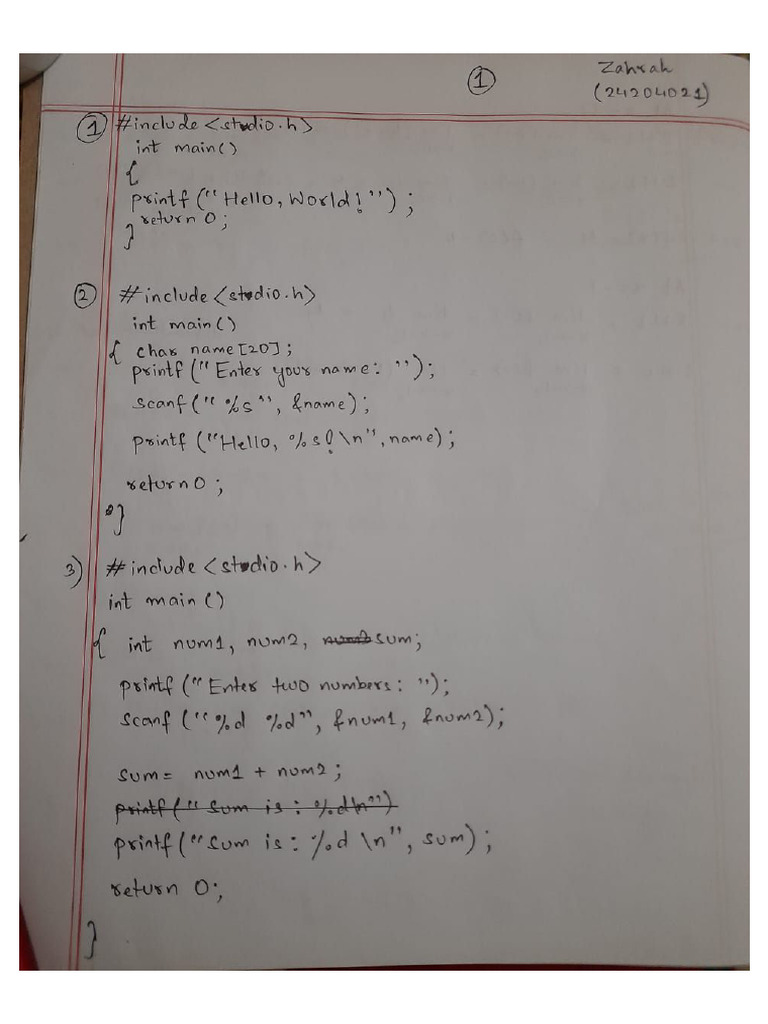 1
Zahrah
(24204021)
1 #include <stdio.h>
int main()
{
printf("Hello, World!");
return 0;
}
2 #include <stdio.h>
int main()
{ char name[20];
printf("Enter your name: ");
scanf("%s", &name);
printf("Hello, %s!\n", name);
return 0;
}
3) #include <stdio.h>
int main()
{ int num1, num2, sum;
printf("Enter two numbers: ");
scanf("%d %d", &num1, &num2);
sum = num1 + num2;
printf("Sum is: %d\n")
printf("Sum is: %d \n", sum);
return 0;
}